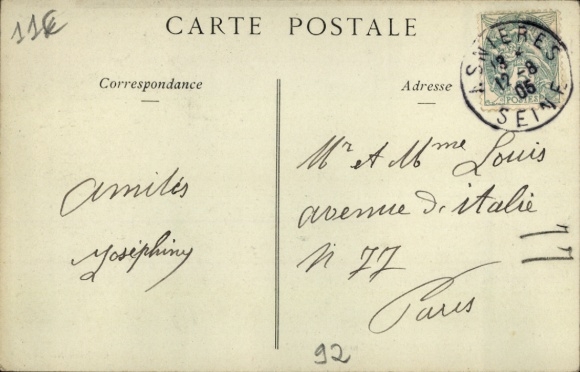 11€
CARTE POSTALE
Correspondance
Adresse
ASNIERES
18 *
12-8
05
SEINE
POSTES
Mr et Mme Louis
avenue d'italie
N 77
Paris
amitiés
Joséphine
92